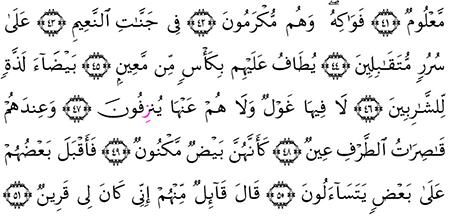 مَّعْلُومٌ ﴿٤١﴾ فَوَٰكِهُ ۖ وَهُم مُّكْرَمُونَ ﴿٤٢﴾ فِى جَنَّٰتِ ٱلنَّعِيمِ ﴿٤٣﴾ عَلَىٰ
سُرُرٍ مُّتَقَٰبِلِينَ ﴿٤٤﴾ يُطَافُ عَلَيْهِم بِكَأْسٍ مِّن مَّعِينٍۭ ﴿٤٥﴾ بَيْضَآءَ لَذَّةٍ
لِّلشَّٰرِبِينَ ﴿٤٦﴾ لَا فِيهَا غَوْلٌ وَلَا هُمْ عَنْهَا يُنزِفُونَ ﴿٤٧﴾ وَعِندَهُمْ
قَٰصِرَٰتُ ٱلطَّرْفِ عِينٌ ﴿٤٨﴾ كَأَنَّهُنَّ بَيْضٌ مَّكْنُونٌ ﴿٤٩﴾ فَأَقْبَلَ بَعْضُهُمْ
عَلَىٰ بَعْضٍ يَتَسَآءَلُونَ ﴿٥٠﴾ قَالَ قَآئِلٌ مِّنْهُمْ إِنِّى كَانَ لِى قَرِينٌ ﴿٥١﴾